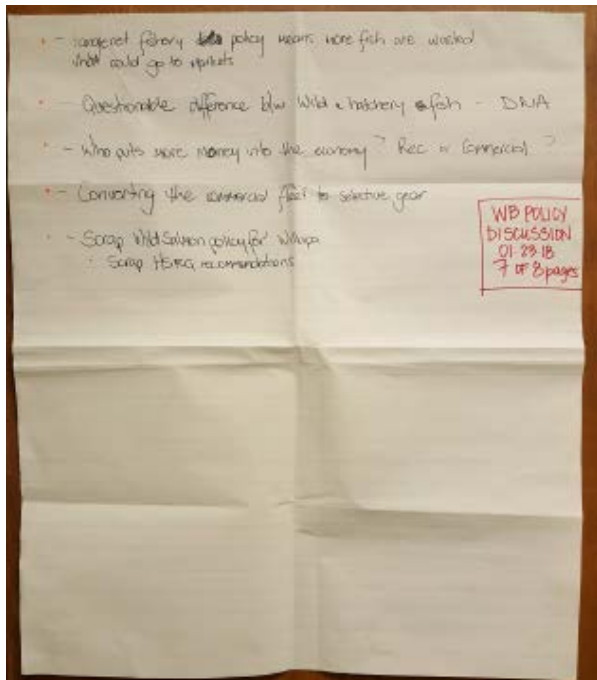 - tanglenet fishery policy means more fish are wasted
that could go to markets
- Questionable difference b/w Wild & hatchery fish - DNA
- Who puts more money into the economy? Rec or Commercial?
- Converting the commercial fleet to selective gear
- Scrap Wild Salmon policy for Willapa
- Scrap HSRG recommendations
WB POLICY
DISCUSSION
01-23-18
7 OF 8 pages